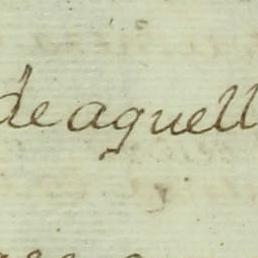 de aquell